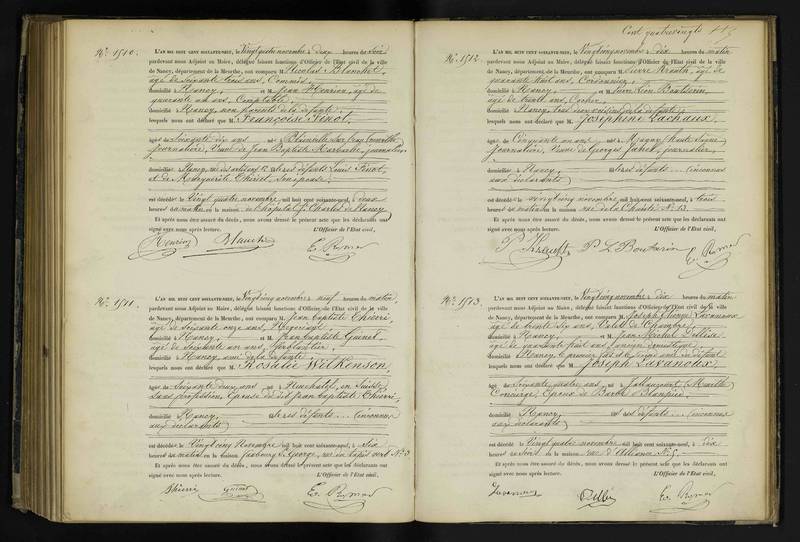 Cent quatre vingts
Nº. 1510.
L'AN MIL HUIT CENT SOIXANTE-NEUF, le Vingt quatre novembre à deux heures du soir
pardevant nous Adjoint au Maire, délégué faisant fonctions d'Officier de l'Etat civil de la ville
de Nancy, département de la Meurthe, ont comparu M. Nicolas Blanchet,
âgé de soixante trois ans, Commis,
domicilié à Nancy, et M. Jean Henrion, âgé de
quarante un ans, Comptable,
domicilié à Nancy, non parents de la défunte
lesquels nous ont déclaré que M. Françoise Pinot,
âgée de Soixante dix ans né à Blainville sur l'eau (Meurthe)
journalière, Veuve de Jean Baptiste journalier,
domicilié à Nancy, rue des artisans fils de défunts Louis Pinot,
et de Marguerite Thiriet, son épouse
est décédé le Vingt quatre novembre, mil huit cent soixante-neuf, à deux
heures du matin en la maison hospital St Charles de Nancy
Et après nous être assuré du décès, nous avons dressé le présent acte que les déclarants ont
signé avec nous après lecture. L'Officier de l'Etat civil,
Henrion Blanchet
Nº. 1511.
L'AN MIL HUIT CENT SOIXANTE-NEUF, le Vingt cinq novembre à neuf heures du matin,
pardevant nous Adjoint au Maire, délégué faisant fonctions d'Officier de l'Etat civil de la ville
de Nancy, département de la Meurthe, ont comparu M. Jean baptiste Thierri
âgé de soixante onze ans, Négociant,
domicilié à Nancy, et M. Jean baptiste Guinet
âgé de soixante un ans, ferblantier,
domicilié à Nancy, ami de la défunte
lesquels nous ont déclaré que M. Rosalie Wilkenson,
âgée de Soixante douze ans, né à Neuchatel, en Suisse
Sans profession, Epouse du dit Jean baptiste Thierri,
domicilié à Nancy, fils de défunts ... (inconnus
aux déclarants)
est décédé le Vingt cinq Novembre mil huit cent soixante-neuf, à six
heures du matin en la maison faubourg St George, rue du tapis vert Nº 3
Et après nous être assuré du décès, nous avons dressé le présent acte que les déclarants ont
signé avec nous après lecture. L'Officier de l'Etat civil,
Thierri Guinet
Nº. 1512
L'AN MIL HUIT CENT SOIXANTE-NEUF, le Vingt cinq novembre à dix heures du matin
pardevant nous Adjoint au Maire, délégué faisant fonctions d'Officier de l'Etat civil de la ville
de Nancy, département de la Meurthe, ont comparu M. Pierre âgé de
quarante huit ans, Cordonnier,
domicilié à Nancy, et M. Pierre Léon
âgé de trente ans, Cocher,
domicilié à Nancy, tous deux voisins de la défunte
lesquels nous ont déclaré que M. Joséphine Lachaux,
âgée de Cinquante un ans, né à (haute Saône)
journalière, Veuve de Georges journalier,
domicilié à Nancy, fils de défunts ... (inconnus
aux déclarants)
est décédé le vingt cinq novembre, mil huit cent soixante-neuf, à trois
heures du matin en la maison rue de la Nº 13
Et après nous être assuré du décès, nous avons dressé le présent acte que les déclarants ont
signé avec nous après lecture. L'Officier de l'Etat civil,
Nº. 1513.
L'AN MIL HUIT CENT SOIXANTE-NEUF, le Vingt cinq novembre à dix heures du matin
pardevant nous Adjoint au Maire, délégué faisant fonctions d'Officier de l'Etat civil de la ville
de Nancy, département de la Meurthe, ont comparu M. Joseph Lavanoux
âgé de trente six ans, Valet de Chambre,
domicilié à Nancy, et M. Jean Michel
âgé de quarante huit ans, ancien domestique
domicilié à Nancy, le premier fils et le second ami du défunt
lesquels nous ont déclaré que M. Joseph Lavanoux,
âgé de Soixante quatre ans, né à (Meurthe)
Concierge, Epoux de Barbe
domicilié à Nancy, fils de défunts ... (inconnus
aux déclarants)
est décédé le Vingt quatre novembre mil huit cent soixante-neuf, à dix
heures du soir en la maison rue d'Alliance Nº 5
Et après nous être assuré du décès, nous avons dressé le présent acte que les déclarants ont
signé avec nous après lecture. L'Officier de l'Etat civil,
Lavanoux